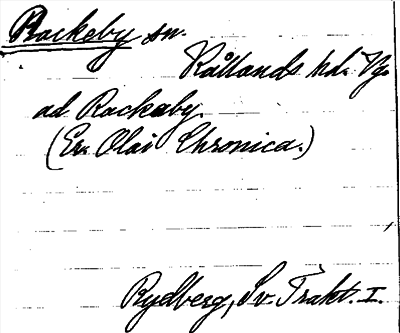 Rackeby sn.
Kållands hd. Vg.
ad Rackaby.
(Er. Olai Chronica.)
Rydberg, Sv. Trakt. I.